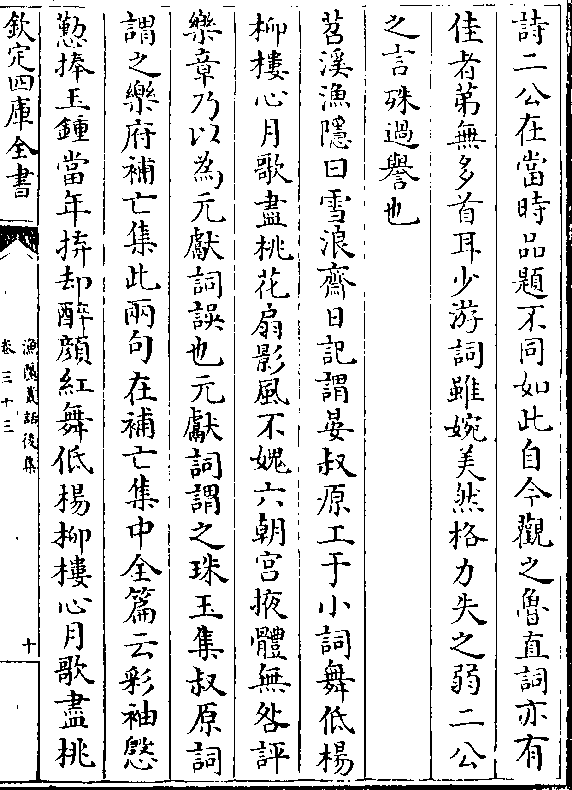 詩二公在當時品題不同如此自今觀之魯直詞亦有
佳者第無多首耳少游詞雖婉美然格力失之弱二公
之言殊過譽也
苕溪漁隱曰雪浪齋日記謂晏叔原工于小詞舞低楊
柳樓心月歌盡桃花扇影風不媿六朝宮掖體無咎評
樂章乃以為元獻詞誤也元獻詞謂之珠玉集叔原詞
謂之樂府補亡集此兩句在補亡集中全篇云彩袖慇
懃捧玉鍾當年拚却醉顔紅舞低楊柳樓心月歌盡桃
欽定四庫全書
漁隱叢話後集
卷三十三
十